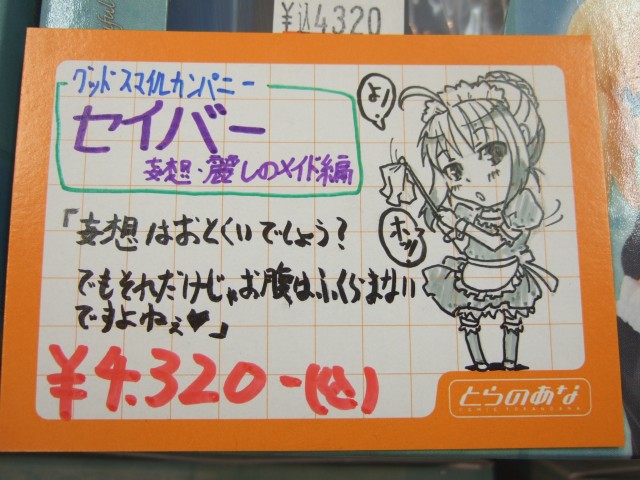 ¥込4320
グッドスマイルカンパニー
セイバー
妄想・麗しのメイド編
「妄想はおとくいでしょう?
でもそれだけじゃお腹はふくらまない
ですよねぇ♥」
¥4.320-(込)
よっ!
とらのあな